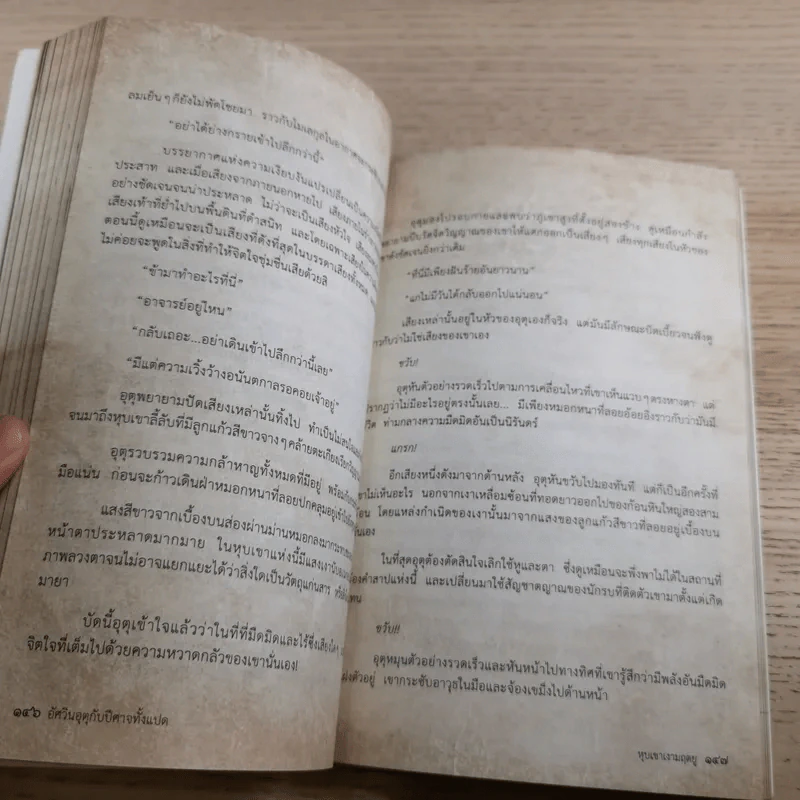 ลมเย็นๆ ก็ยังไม่พัดโชยมา ราวกับโมเลกุลในอากาศ
"อย่าได้ย่างกรายเข้าไปลึกกว่านี้"
บรรยากาศแห่งความเงียบงันแปรเปลี่ยนเป็นความ
ประสาท และเมื่อเสียงจากภายนอกหายไป เสียงภายใน
อย่างชัดเจนจนน่าประหลาด ไม่ว่าจะเป็นเสียงหัวใจ
เสียงเท้าที่ย่ำไปบนพื้นดินที่ดำสนิท และโดยเฉพาะเสียง
ตอนนี้ดูเหมือนจะเป็นเสียงที่ดังที่สุดในบรรดาเสียงทั้งหมด
ไม่ค่อยจะพูดในสิ่งที่ทำให้จิตใจชุ่มชื่นเสียด้วยสิ
"ข้ามาทำอะไรที่นี่"
"อาจารย์อยู่ไหน"
"กลับเถอะ...อย่าเดินเข้าไปลึกกว่านี้เลย"
"มีแต่ความเวิ้งว้างอนันตกาลรอคอยเจ้าอยู่"
อุตุพยายามปัดเสียงเหล่านั้นทิ้งไป ทำเป็นไม่สนใจ
จนมาถึงหุบเขาลี้ลับที่มีลูกแก้วสีขาวจางๆ คล้ายตะเกียง
อุตุรวบรวมความกล้าหาญทั้งหมดที่มีอยู่ พร้อม
มือแน่น ก่อนจะก้าวเดินฝ่าหมอกหนาที่ลอยปกคลุมอยู่
แสงสีขาวจากเบื้องบนส่องผ่านม่านหมอกลงมากระทบ
หน้าตาประหลาดมากมาย ในหุบเขาแห่งนี้มีแสงเงา
ภาพลวงตาจนไม่อาจแยกแยะได้ว่าสิ่งใดเป็นวัตถุแก่นสาร
มายา
บัดนี้อุตุเข้าใจแล้วว่าในที่ที่มืดมิดและไร้ซึ่งเสียงใดๆ
จิตใจที่เต็มไปด้วยความหวาดกลัวของเขานั่นเอง!
๑๔๖ อัศวินอุตุกับปีศาจทั้งแปด
อุตุมองไปรอบกายและพบว่าภูเขาสูงที่ตั้งอยู่สองข้าง ดูเหมือนกำลัง
พยายามบีบรัดจิตวิญญาณของเขาให้แตกออกเป็นเสี่ยงๆ เสียงทุกเสียงในหัวของ
ดังชัดเจนยิ่งกว่าเดิม
"ที่นี่มีเพียงฝันร้ายอันยาวนาน"
"แกไม่มีวันได้กลับออกไปแน่นอน"
เสียงเหล่านั้นอยู่ในหัวของอุตุเองก็จริง แต่มันมีลักษณะบิดเบี้ยวจนฟังดู
ราวกับว่าไม่ใช่เสียงของเขาเอง
ขวับ!
อุตุหันตัวอย่างรวดเร็วไปตามการเคลื่อนไหวที่เขาเห็นแวบๆ ตรงหางตา แต่
ปรากฏว่าไม่มีอะไรอยู่ตรงนั้นเลย... มีเพียงหมอกหนาที่ลอยอ้อยอิ่งราวกับว่ามันมี
ชีวิต ท่ามกลางความมืดมิดอันเป็นนิรันดร์
แกรก!
อีกเสียงหนึ่งดังมาจากด้านหลัง อุตุหันขวับไปมองทันที แต่ก็เป็นอีกครั้งที่
เขาไม่เห็นอะไร นอกจากเงาเหลื่อมซ้อนที่ทอดยาวออกไปของก้อนหินใหญ่สองสาม
ก้อน โดยแหล่งกำเนิดของเงานั้นมาจากแสงของลูกแก้วสีขาวที่ลอยอยู่เบื้องบน
นั่นเอง
ในที่สุดอุตุต้องตัดสินใจเลิกใช้หูและตา ซึ่งดูเหมือนจะพึ่งพาไม่ได้ในสถานที่
ต้องคำสาปแห่งนี้ และเปลี่ยนมาใช้สัญชาตญาณของนักรบที่ติดตัวเขามาตั้งแต่เกิด
แทน
ขวับ!!
อุตุหมุนตัวอย่างรวดเร็วและหันหน้าไปทางทิศที่เขารู้สึกว่ามีพลังอันมืดมิด
แฝงตัวอยู่ เขากระชับอาวุธในมือและจ้องเขม็งไปด้านหน้า
หุบเขาเงามฤตยู ๑๔๗